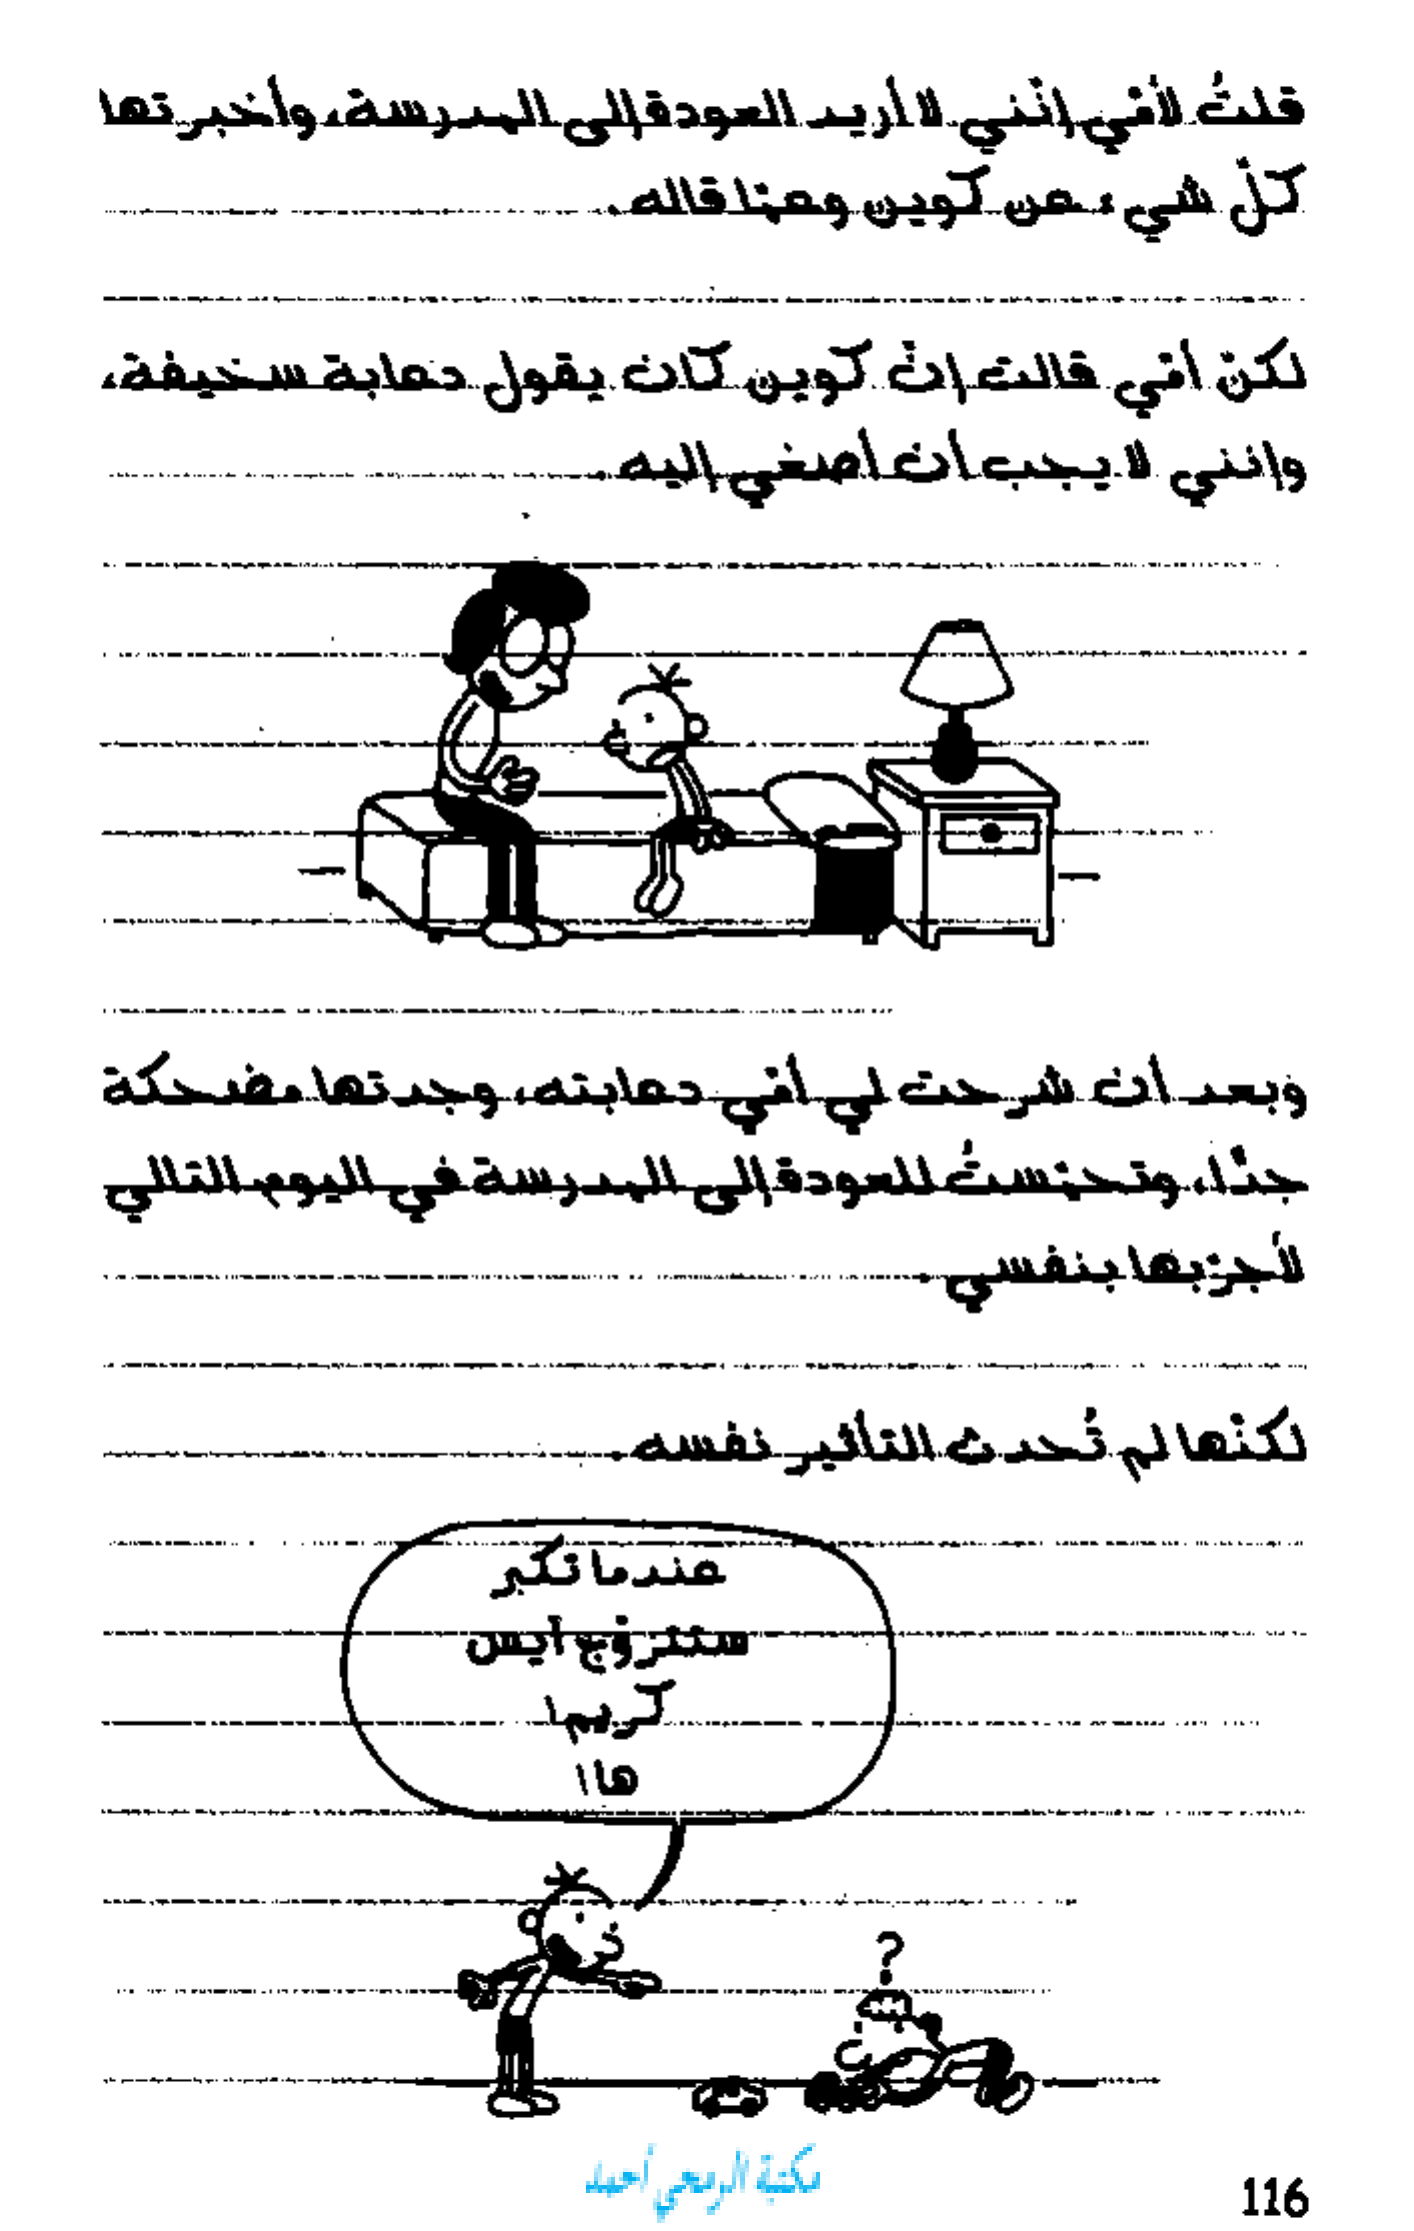 قلتُ لأمّي إنّني لا أريد العودة إلى المدرسة، وأخبرتها
كلّ شيء عن كوين وعمّا قاله.
لكنّ أمّي قالت إنّ كوين كان يقول دعابة سخيفة،
وإنني لا يجب أن أصغي إليه.
وبعد أن شرحت لي أمّي دعابته، وجدتها مضحكة
جدًّا، وتحمّستُ للعودة إلى المدرسة في اليوم التالي
لأجرّبها بنفسي.
لكنّها لم تُحدث التأثير نفسه.
عندما تكبر
ستتزوّج آيس
كريم!
ها!
?
مكتبة الرمحي أحمد
116